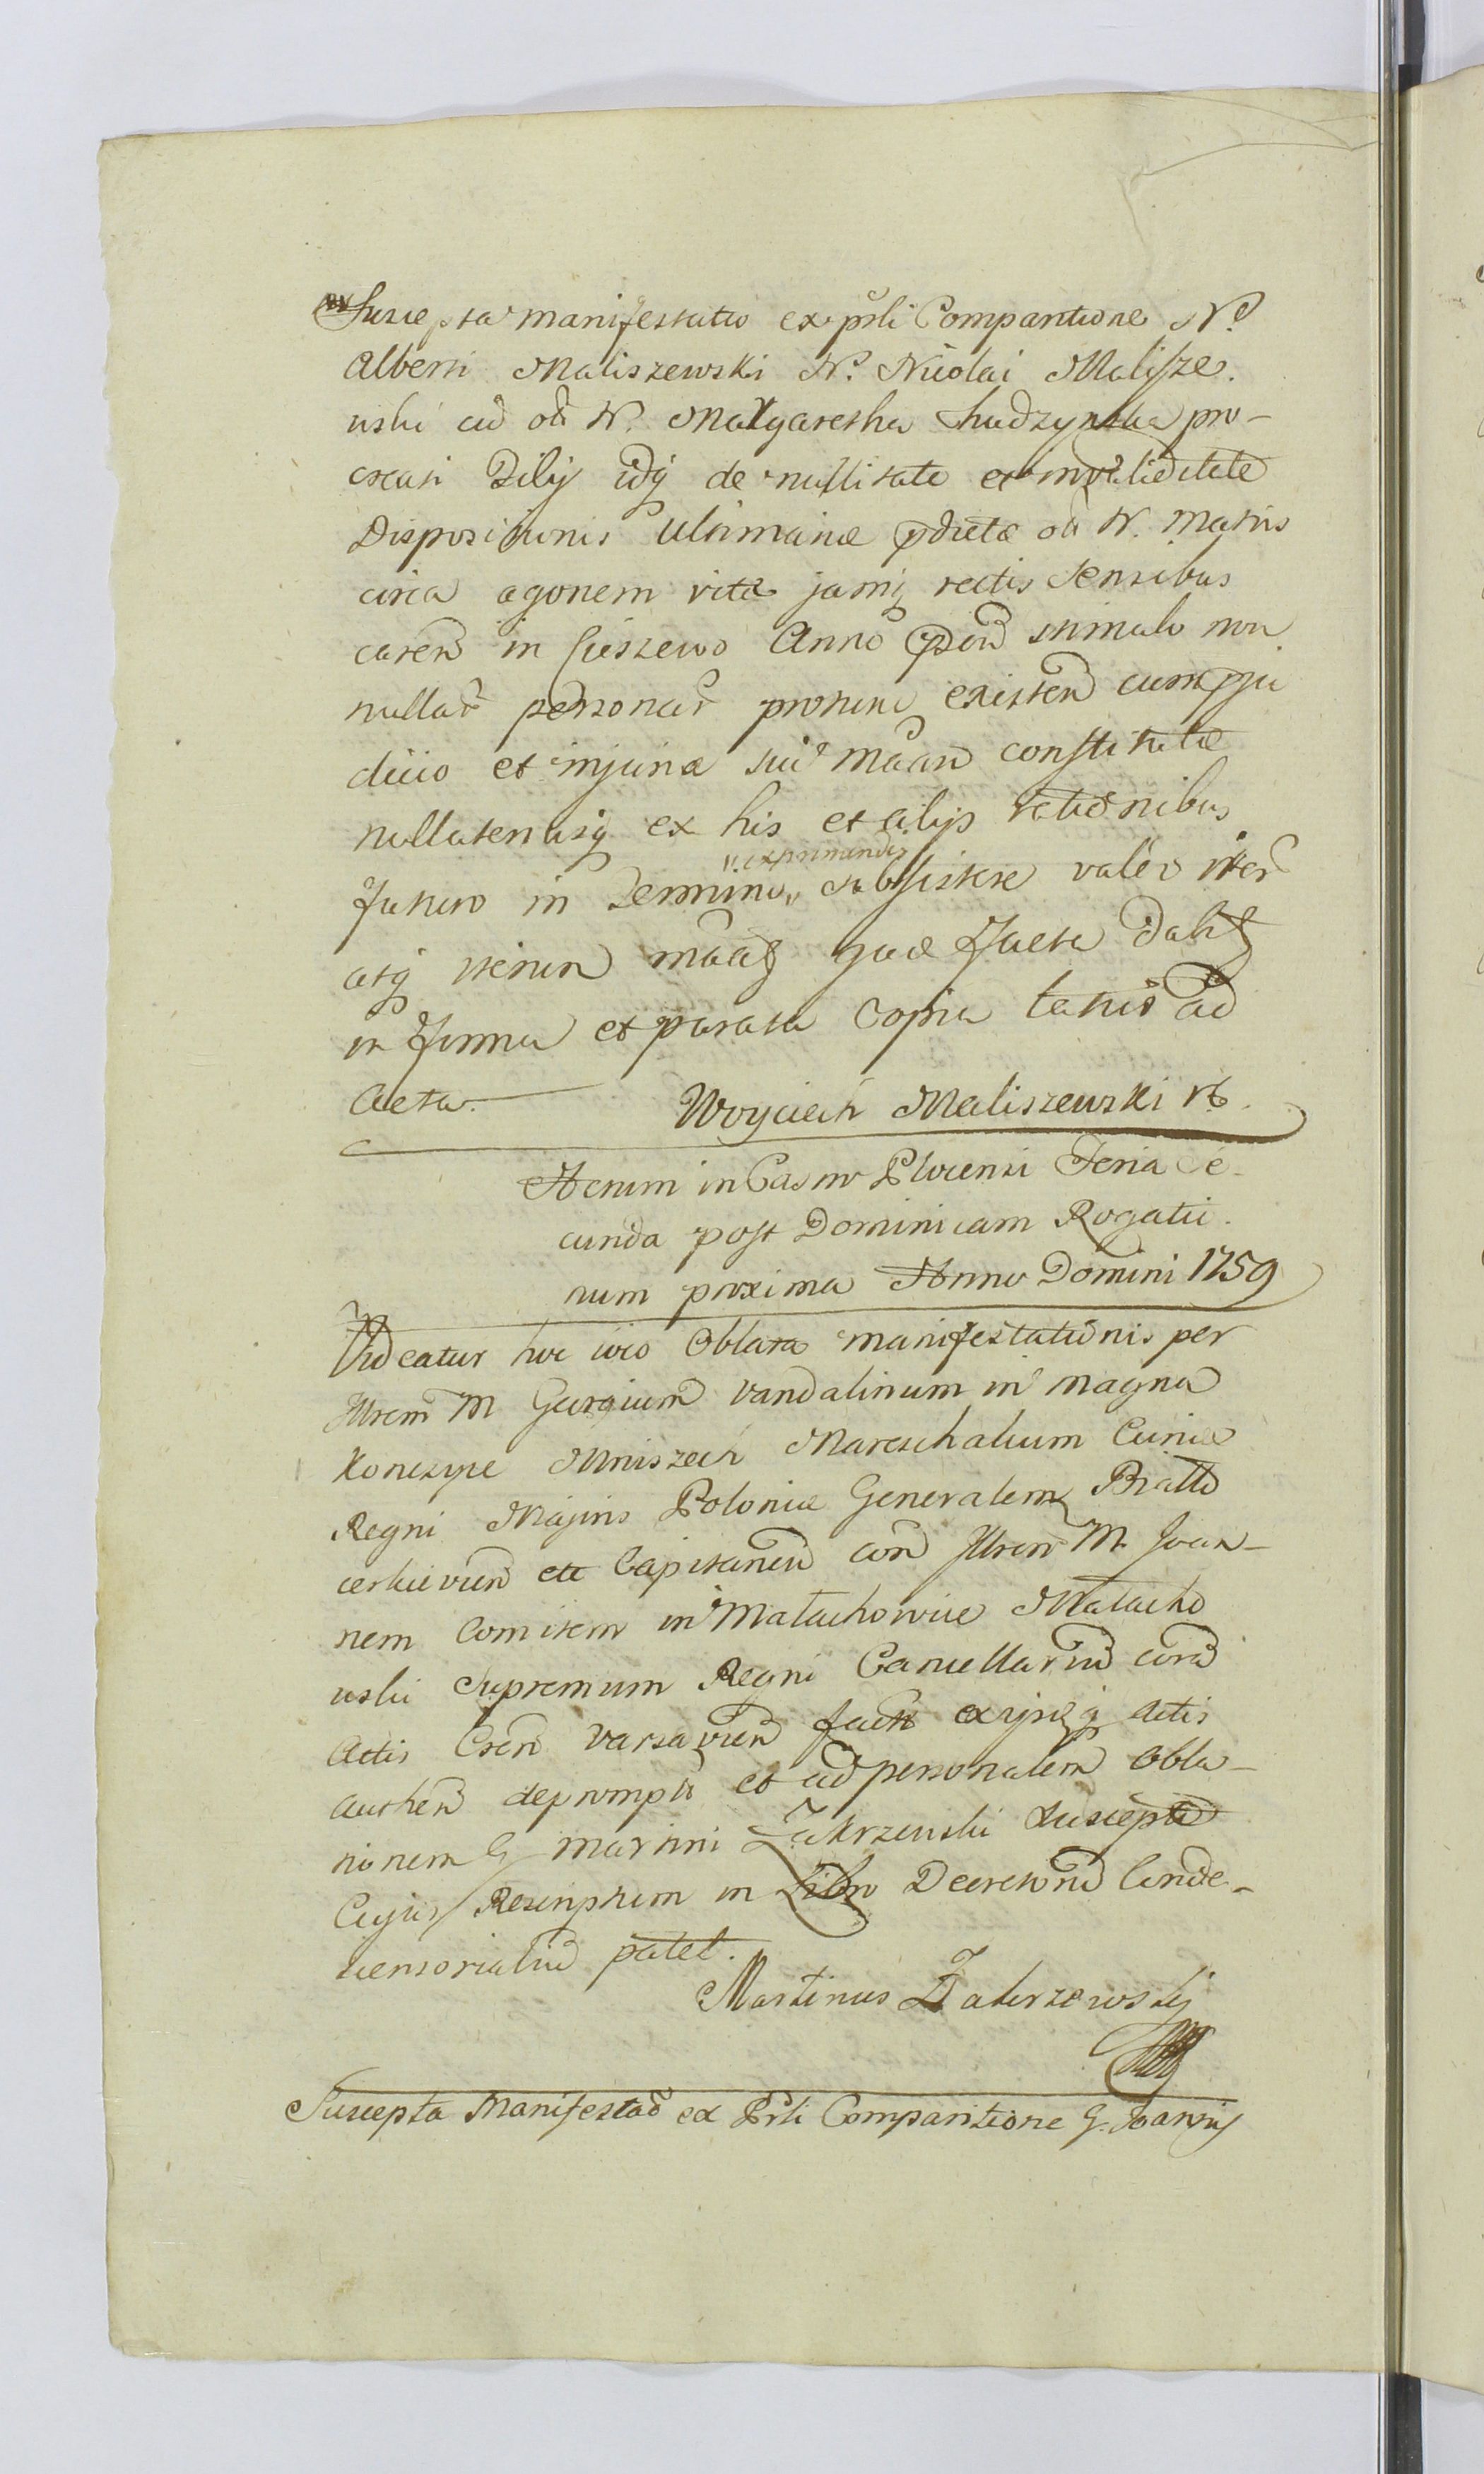 Suscepta manifestatio ex prsti Comparitione N.
Alberti Maliszewski N. Nicolai Malisze.
wski cũ olĩ N. Malgaretha Chudzynska pro-
creati Filij idq de nullitate et invaliditate
Dispositionis Ultimariæ pdictæ olĩ N. Matris
circa agonem vitæ jamq rectis sensibus
caren in Anno stimulo non
nullar personar protunc existen cum præju
dicio et injuria sui Maãn constitutæ
nullatenusq ex his et alijs rationibus
"exprimendis
futuro in Termino" subsistere valen iter
atq iterum mãa quæ facta
in forma et parata Copia ad
Acta.
Wojciech Maliszewski
Actum in Castro Plocensi Feria Se-
cunda post Dominicam Rogatio.
num proxima Anno Domini 1759
Videatur hoc loco Oblata manifestationis per
Illrem M Georgium Vandalinum in Magna
Konczyce Mniszech Mareschalcum Curiæ
Regni Majoris Poloniæ Generalem Biallo
cerkievien etc Capitaneũ con Illrem M. Joan-
nem Comitem in Małachowice Małacho
wski Supremum Regni Cancellariũ corã
Actis Csen Varsavien fact exijsq Actis
authen deprompta et ad personalem Obla-
tionem G Martini Zakrzewski suscepta
Cujus Rescriptum in Libro Decretorũ Conde-
scensorialiũ patet.
Martinus Zakrzewsky
Suscepta Manifestaõ ex Prsti Comparitione G. Joannis